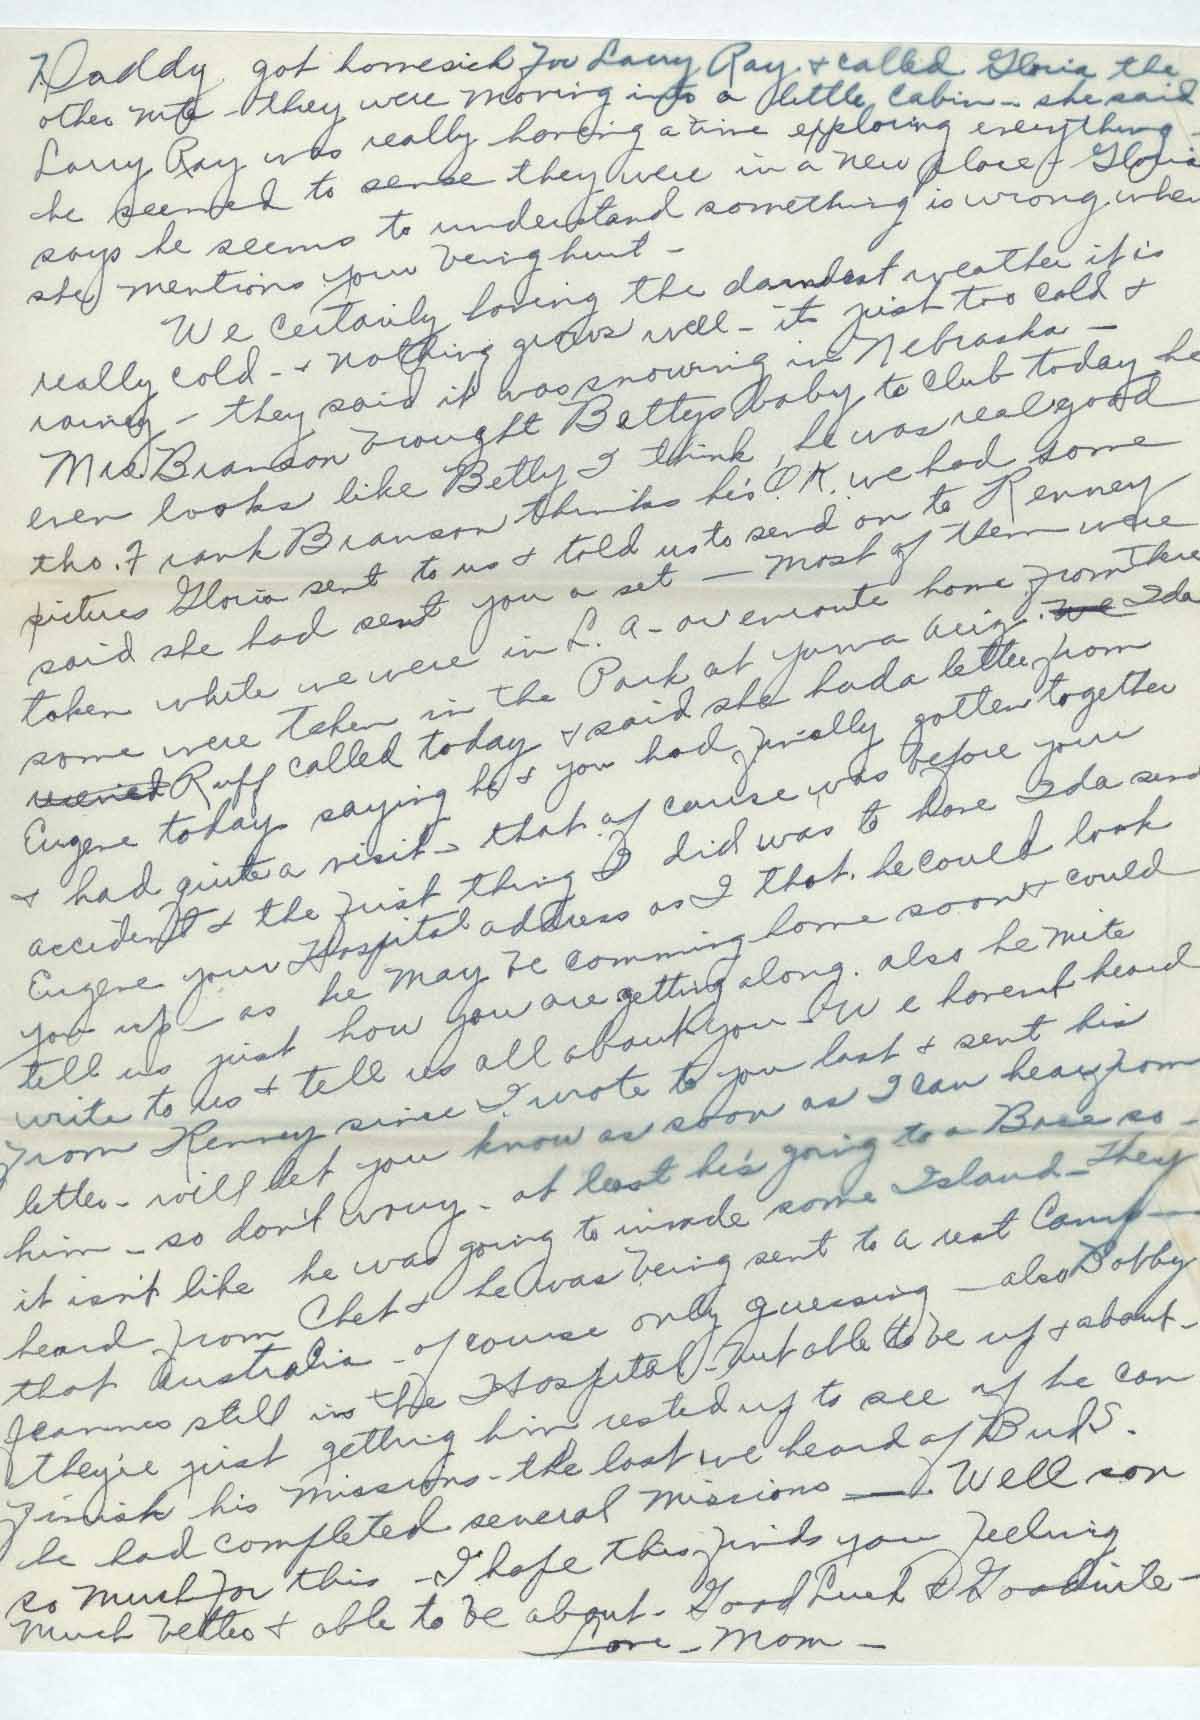 Daddy got homesick for Larry Ray & called Gloria the
other nite - they were moving into a little cabin - she said
Larry Ray was really having a time exploring everything -
he seemed to sense they were in a new place - Gloria
says he seems to understand something is wrong when
she mentions your being hurt -
We certainly having the damdest weather it is
really cold - & nothing grows well - its just too cold &
rainey - they said it was snowing in Nebraska -
Mrs. Branson brought Bettys baby to Club today he
even looks like Betty I think, he was real good
tho. Frank Branson thinks he's O.K. we had some
pictures Gloria sent to us & told us to send on to Kenney
said she had sent you a set - most of them were
taken while we were in L.A - or enroute home from There
some were taken in the Park at Yuma Ariz. We Ida
Ruff called today & said she had a letter from
Eugene today saying he & you had finally gotten together
& had quite a visit - that of cause was before your
accident & the first thing I did was to have Ida send
Eugene your Hospital address as I that. he could look
you up - as he may be comming home soon & could
tell us just how you are getting along. also he mite
write to us & tell us all about you - We havent heard
from Kenney since I wrote to you last & sent his
letter - will let you know as soon as I can hear from
him - so don't worry - at least he's going to a Base so -
it isn't like he was going to invade some Island - They
heard from Chet & he was being sent to a rest Camp -
that Australia - of course only guessing - also Bobby
Jeannes still in the Hospital - but able to be up & about -
they're just getting him rested up to see if he can
finish his missions - the last we heard of Bud S.
he had completed several missions - Well son
so much for this - I hope this finds you feeling
much better & able to be about - Good Luck & Goodnite -
Love - Mom -